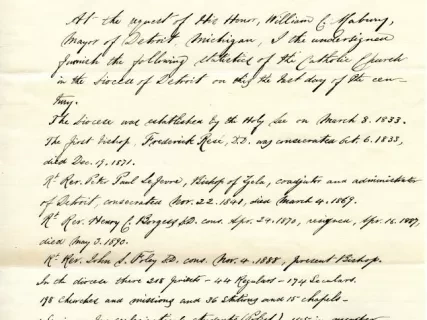 At the request of His Honor, William C. Mabury,
Mayor of Detroit, Michigan, I the undersigned
furnish the following statistics of the Catholic Church
in the Diocese of Detroit on this the last day of the cen-
tury.
The Diocese was established by the Holy See on March 8. 1833.
The first bishop, Frederick Resé, D.D. was consecrated Oct. 6. 1833,
died Dec. 1871.
Rt. Rev. Peter Paul Lefevre, Bishop of Zela, coadjutor and administrator
of Detroit, consecrated Nov. 22. 1841, died March 4. 1869.
Rt. Rev. Henry C. Borgess DD. cons. Apr. 24. 1870, resigned, Apr. 16. 1887,
died May 3. 1890.
Rt. Rev. John S. Foley DD. cons. Nov. 4. 1888, present Bishop.
In the diocese there 218 priests - 44 Regulars - 174 Seculars.
Churches and missions and 36 stations and 15 chapels -